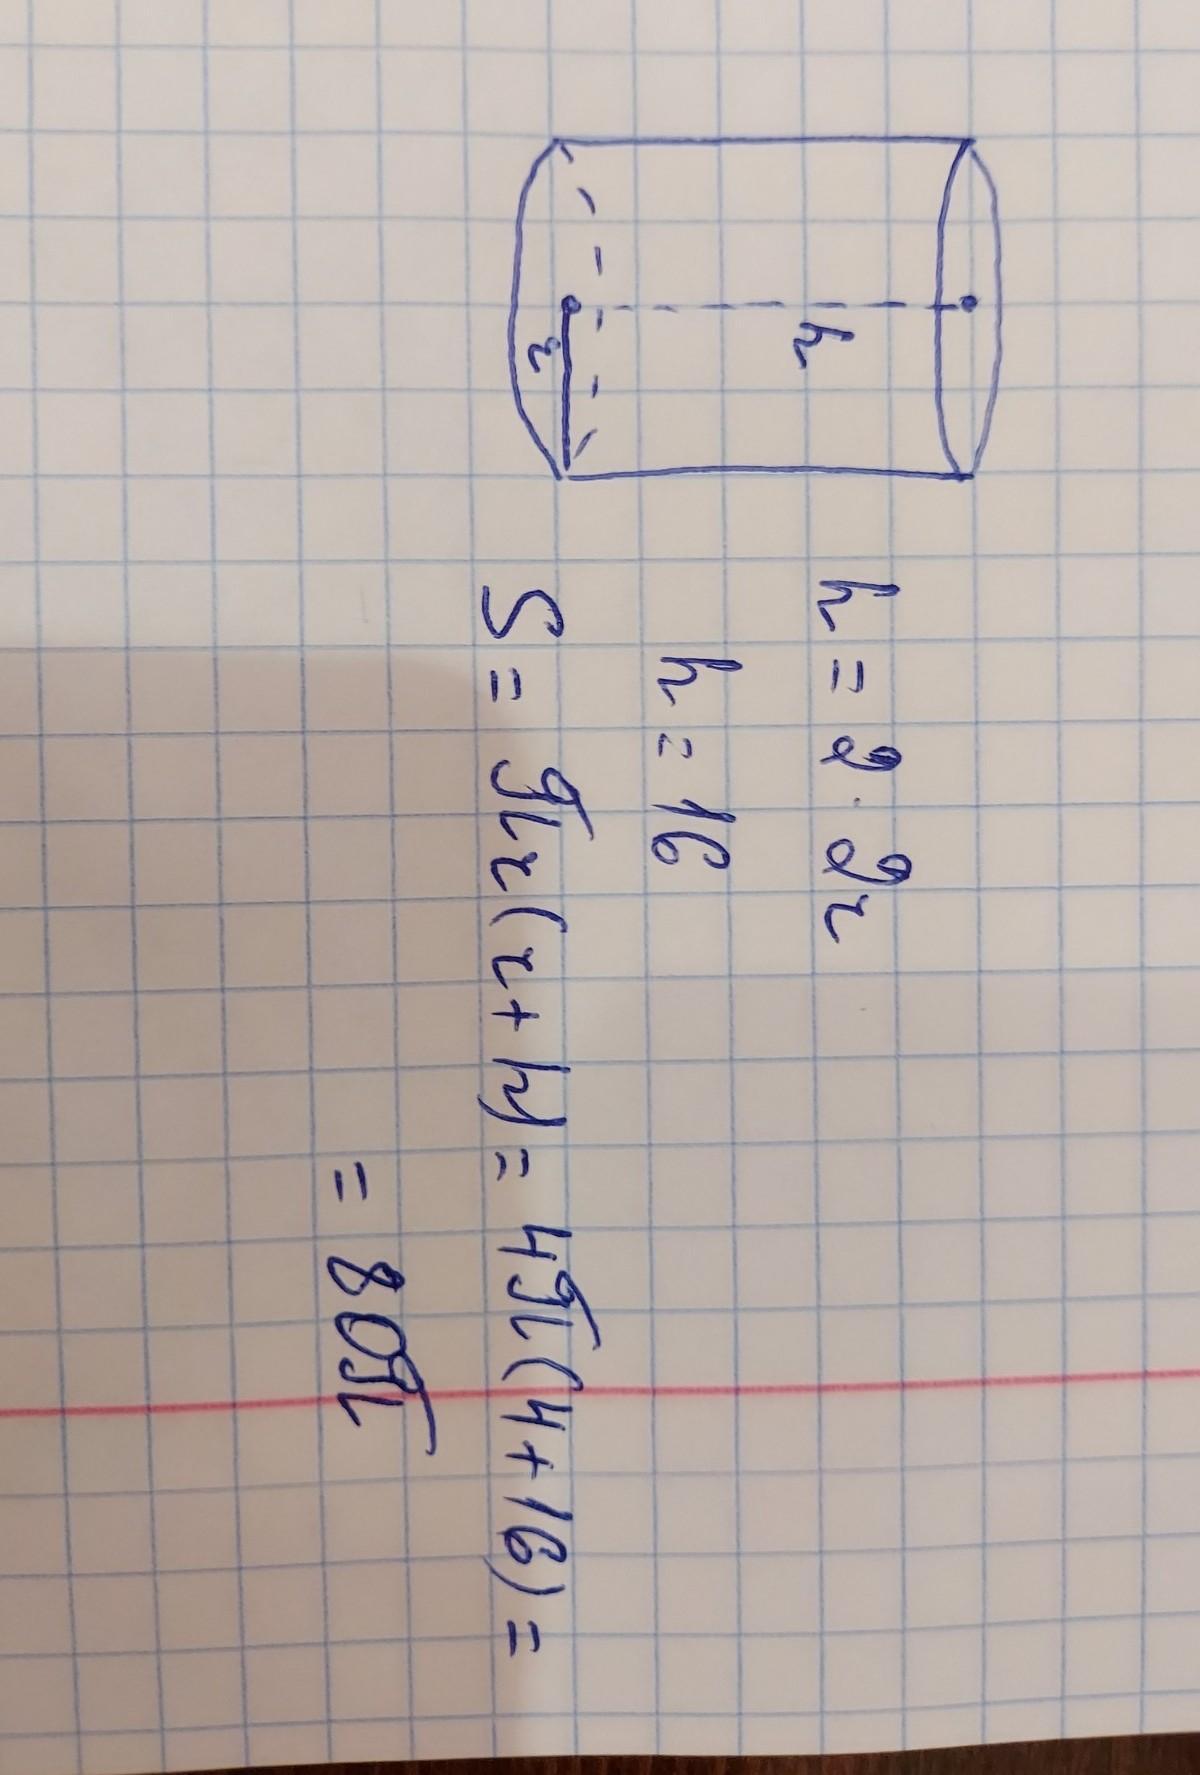 h
r
h = 2 · 2r
h = 16
S = πr(r + h) = 4π(4 + 16) =
= 80π